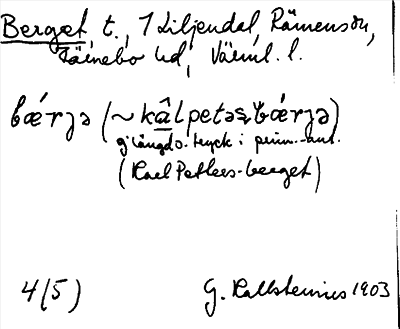 Berget t., 1 Liljendal, Rämmens sn,
Färnebo hd, Värml. l.
bǽrjə (~ kâlpetəs bǽrjə)
g. längd o. tryck i prim.-ant.
(Karl Petters-berget)
4(5) G. Kallstenius 1903